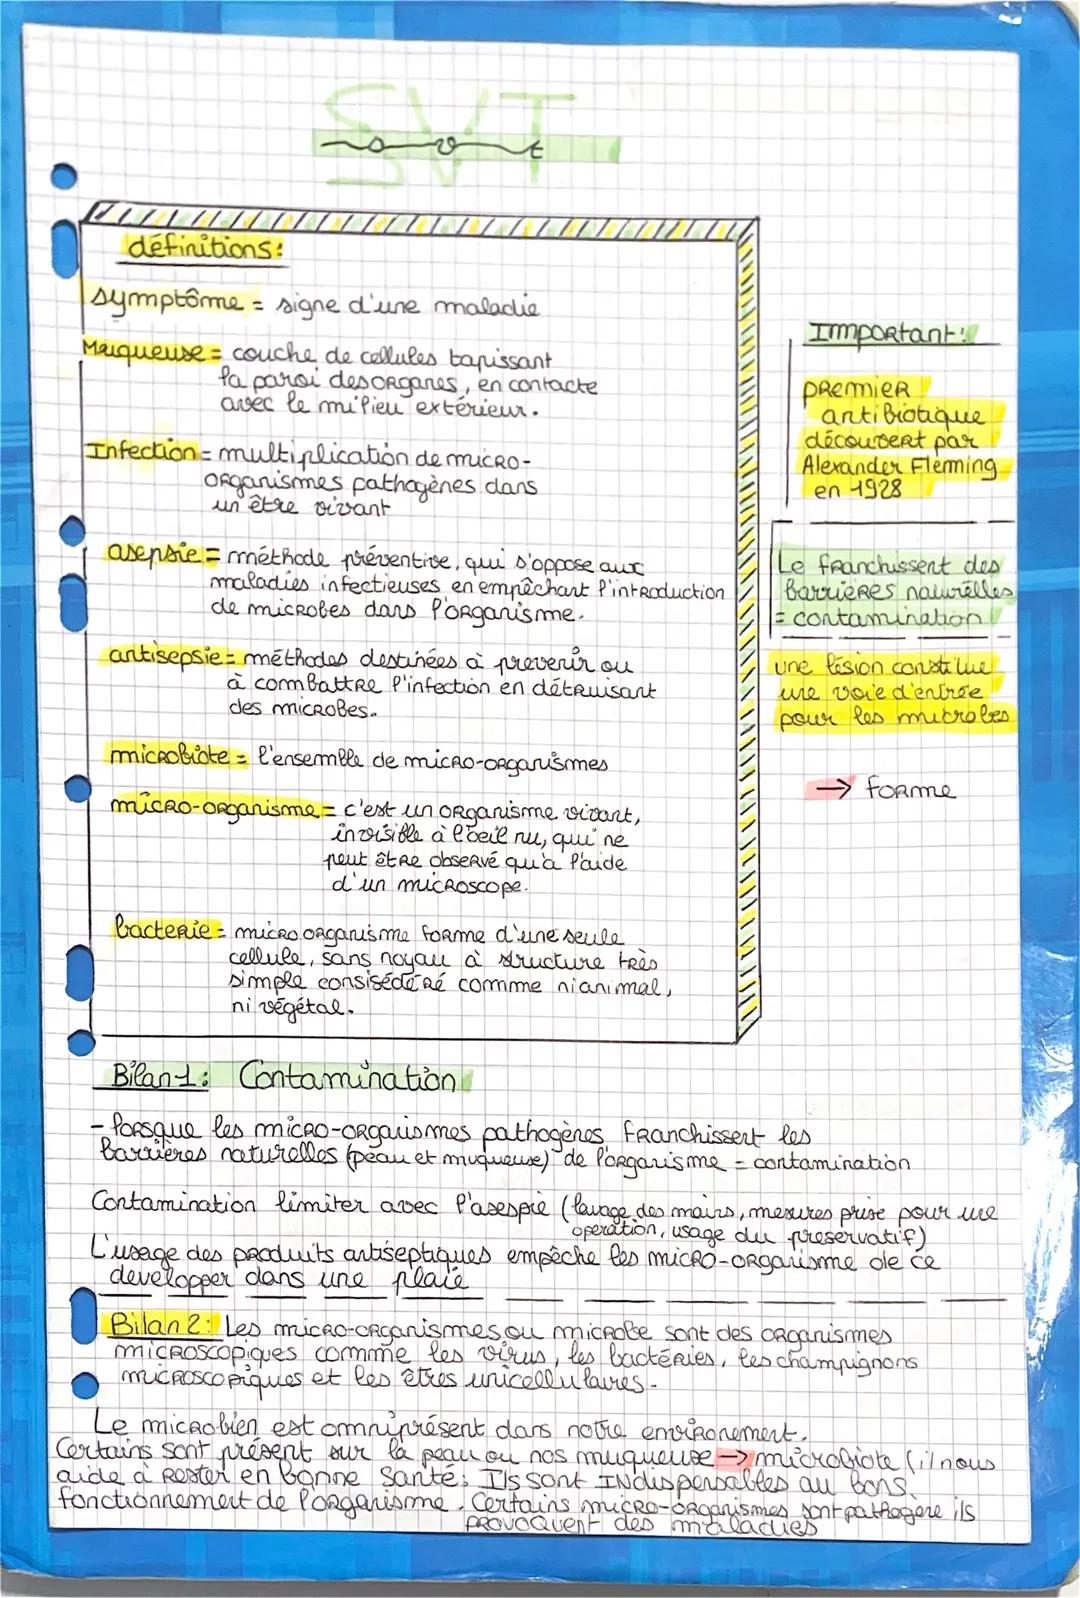 SVT
svt
définitions:
symptôme = signe d'une maladie
Muqueuse = couche de cellules tapissant
la paroi des organes, en contacte
avec le milieu extérieur.
Infection = multiplication de micro-
organismes pathogènes dans
un être vivant
asepsie = méthode préventive, qui s'oppose aux
maladies infectieuses en empêchant l'introduction
de microbes dans l'organisme.
antisepsie = méthodes destinées à prevenir ou
à combattre l'infection en détruisant
des microbes.
microbiote = l'ensemble de micro-organismes
micro-organisme = c'est un organisme vivant,
invisible à l'oeil nu, qui ne
peut être observé qu'à l'aide
d'un microscope.
bacterie = micro organisme forme d'une seule
cellule, sans noyau à structure très
simple consisédéré comme ni animal,
ni végétal.
Important:
premier
antibiotique
découvert par
Alexander Fleming
en 1928
Le franchissent des
barrières naturelles
= contamination
une lésion constitue
une voie d'entrée
pour les microbes
→ forme
Bilan 1: Contamination
- lorsque les micro-organismes pathogènes franchissent les
barrières naturelles (peau et muqueuse) de l'organisme = contamination
Contamination limiter avec l'asespie (lavage des mains, mesures prise pour une
operation, usage du preservatif)
L'usage des produits antiseptiques empêche les micro-organisme de ce
developper dans une plaie
Bilan 2: Les micro-organismes ou microbe sont des organismes
microscopiques comme les virus, les bactéries, les champignons
microscopiques et les êtres unicellulaires.
Le microbien est omniprésent dans notre environement.
Certains sont présent sur la peau ou nos muqueuse → microbiote (il nous
aide à rester en bonne santé; Ils sont Indispensables au bons
fonctionnement de l'organisme. Certains micro-organismes sont pathogere ils
provoquent des maladies